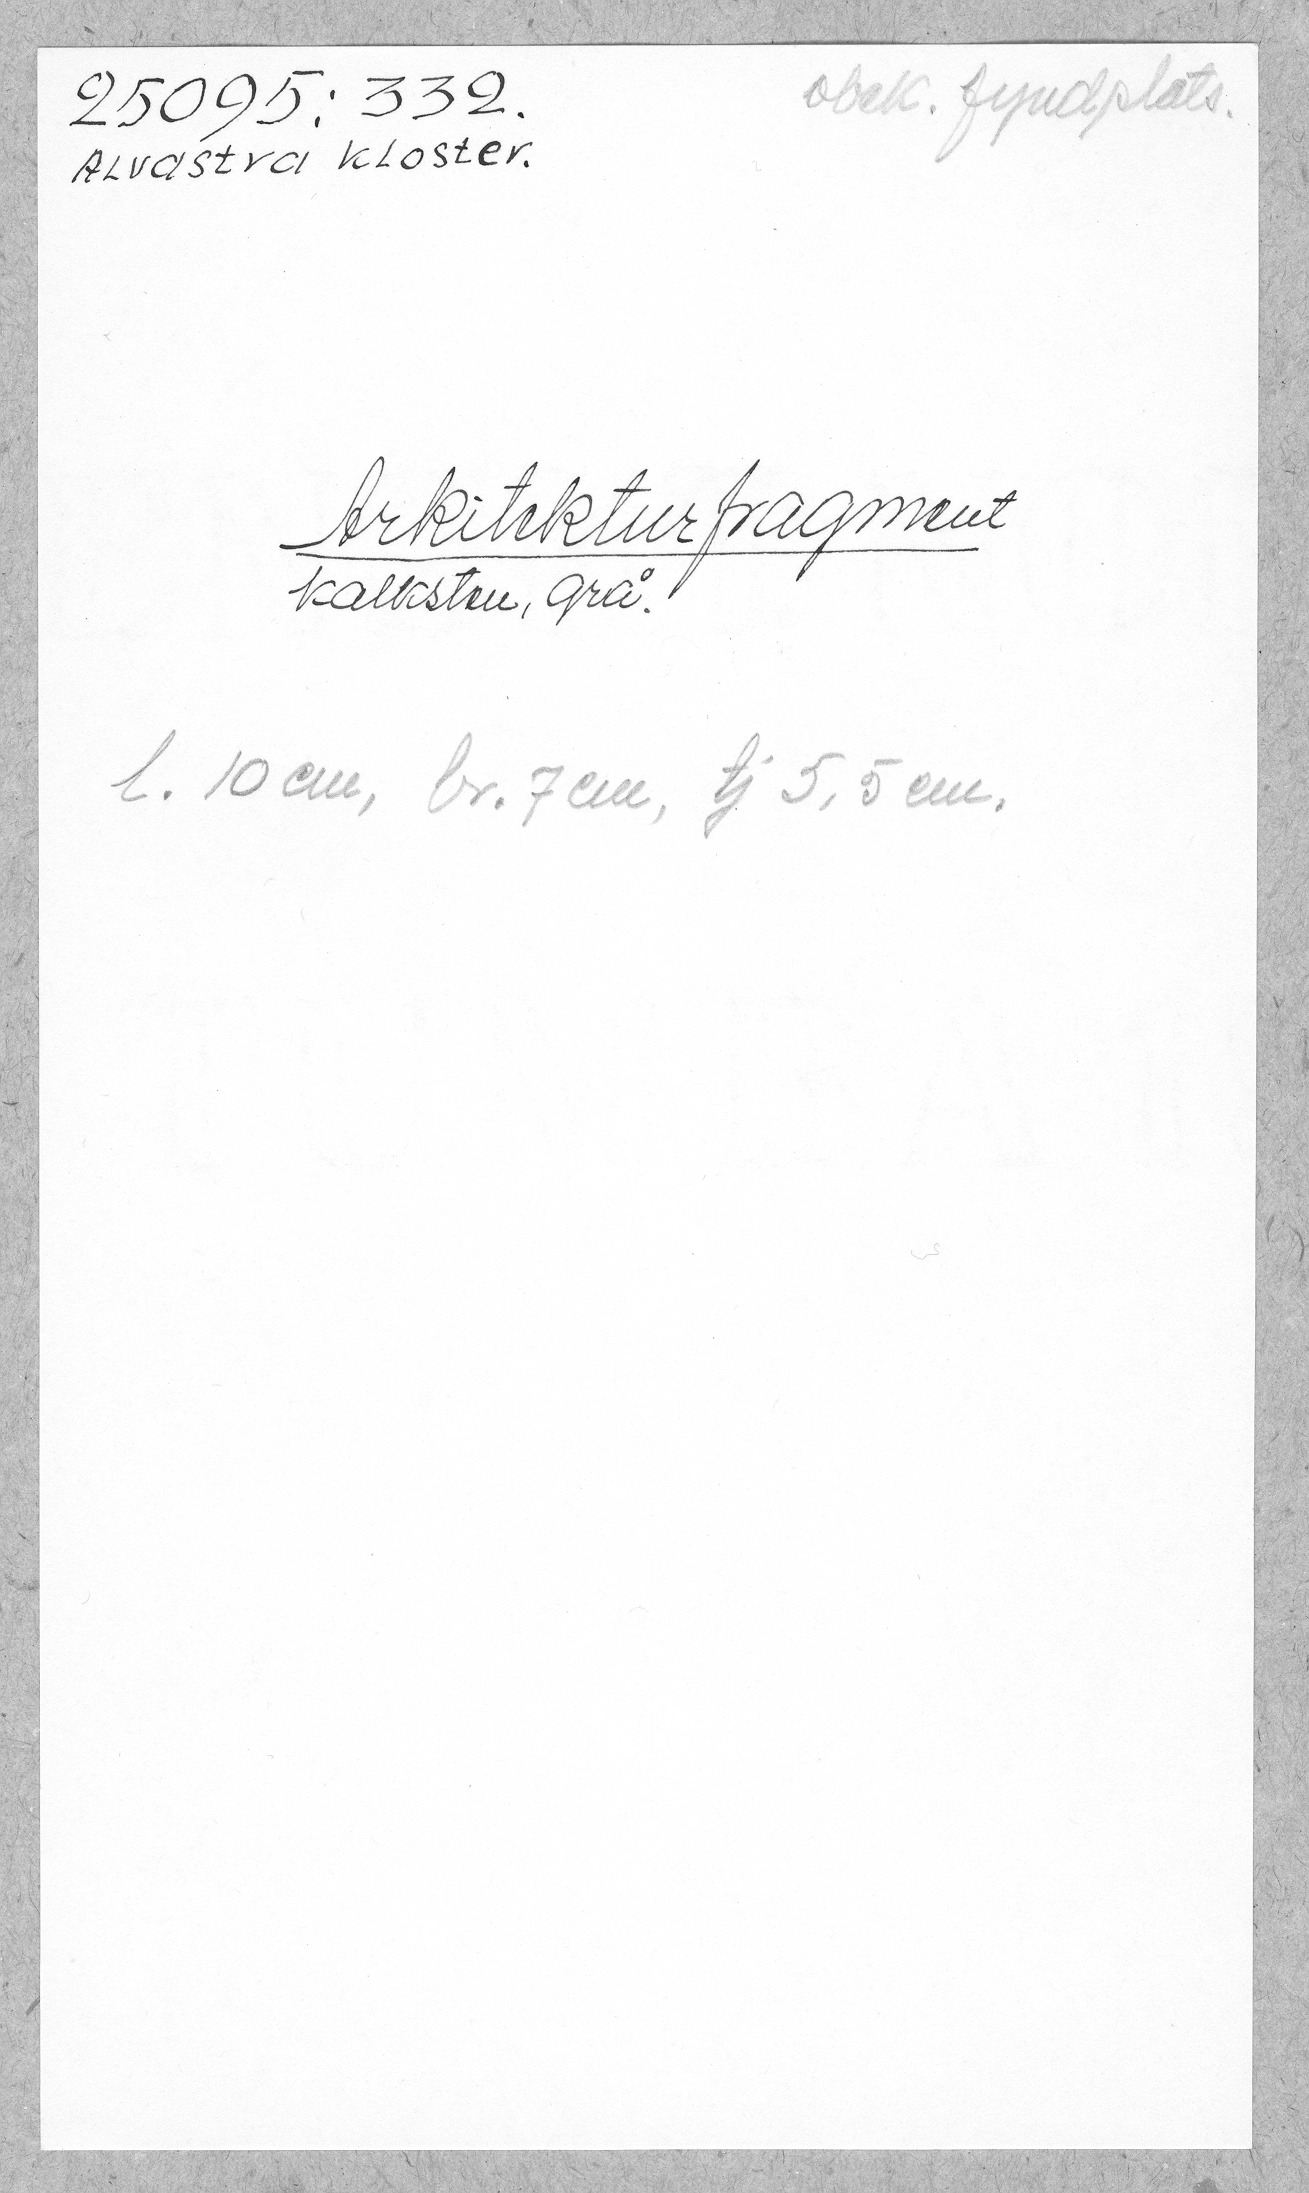 25095: 332.
obek. fyndplats.
Alvastra kloster.
Arkitekturfragment
kalksten, grå.
l. 10 cm, br. 7 cm, tj 5,5 cm.